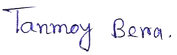 Tanmoy Bera.